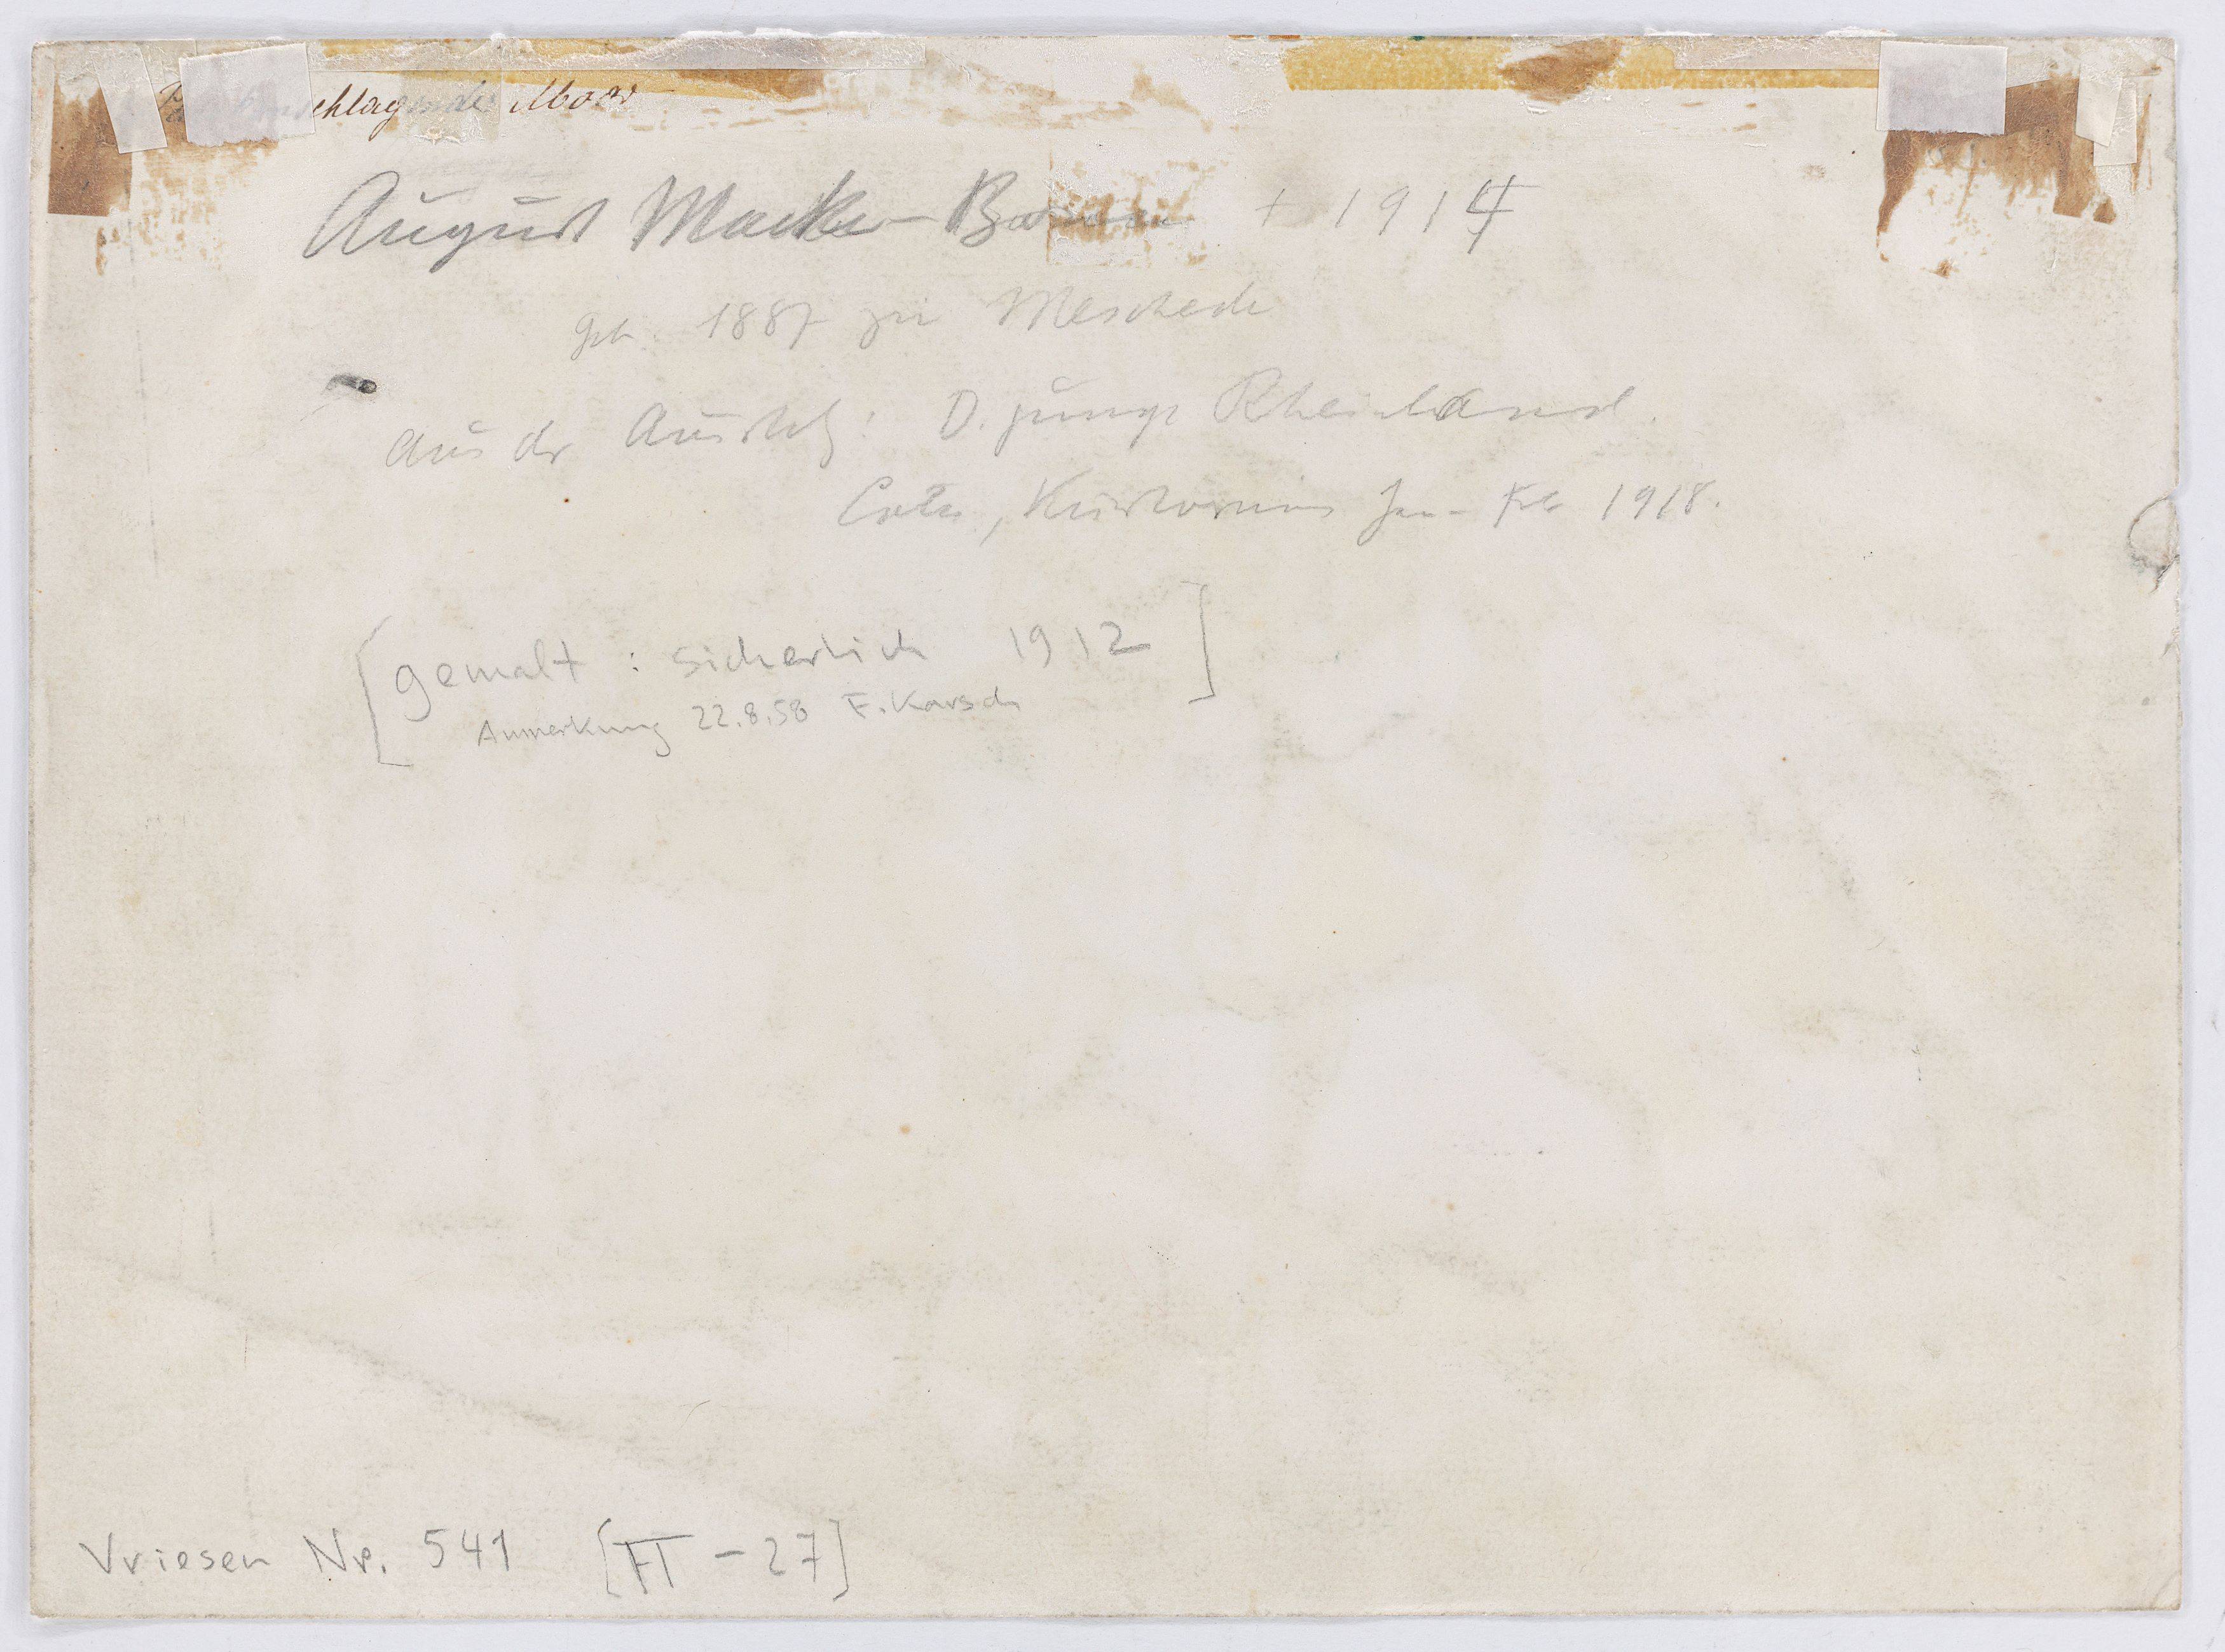 Moor
August Macke - Bonn + 1914
geb. 1887 zu Meschede
aus der Ausstelg: D. junge Rheinland.
Cöln, Kunstverein Jan - Feb 1918.
[gemalt : sicherlich 1912]
Anmerkung 22.8.58 F. Karsch
Vriesen Nr. 541 [II - 27]